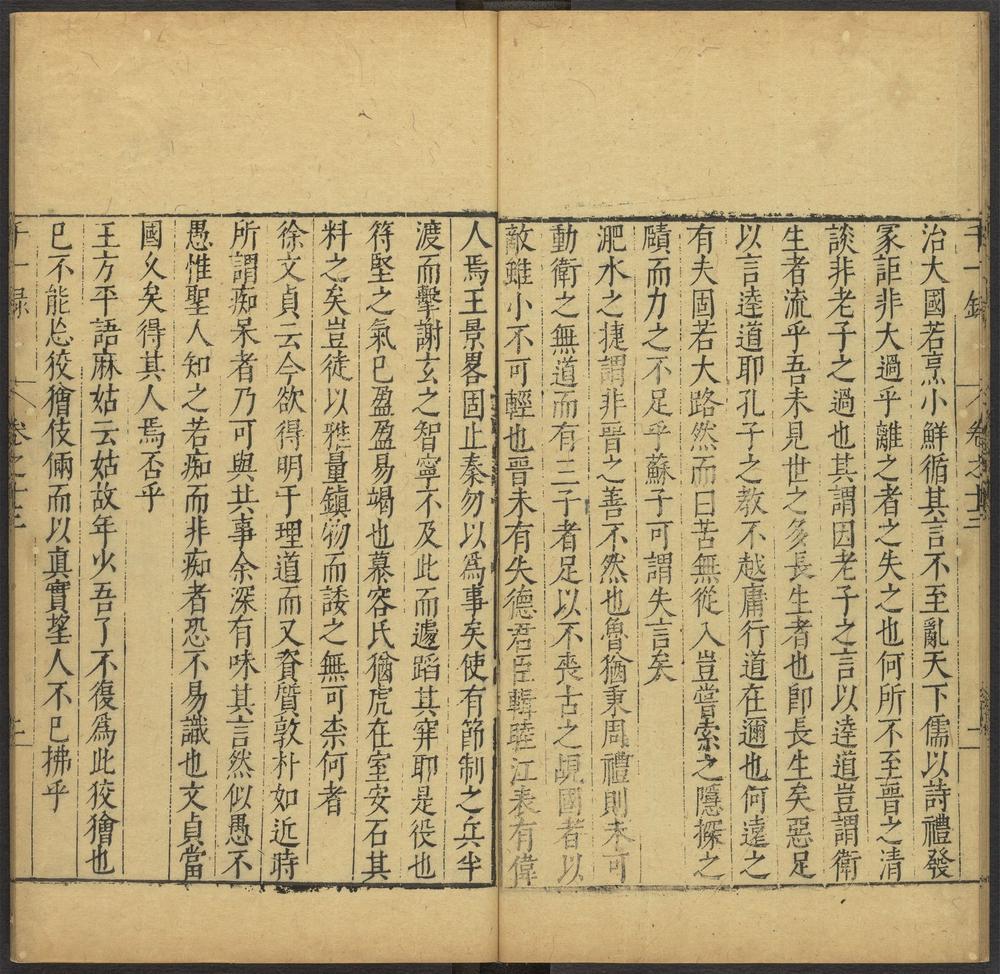 千一錄 卷之十三
治大國若烹小鮮循其言不至亂天下儒以詩禮發
冢詎非大過乎離之者之失之也何所不至晉之清
談非老子之過也其謂因老子之言以逹道豈謂衛
生者流乎吾未見世之多長生者也卽長生矣惡足
以言逹道耶孔子之教不越庸行道在邇也何遠之
有夫固若大路然而曰苦無從入豈嘗索之隱探之
賾而力之不足乎蘇子可謂失言矣
淝水之捷謂非晉之善不然也魯猶秉周禮則未可
動衛之無道而有三子者足以不喪古之覘國者以
敵雖小不可輕也晉未有失德君臣輯睦江表有偉
人焉王景畧固止秦勿以爲事矣使有節制之兵半
渡而擊謝玄之智寧不及此而遽蹈其穽耶是役也
符堅之氣已盈盈易竭也慕容氏猶虎在室安石其
料之矣豈徒以雅量鎭物而諉之無可柰何者
徐文貞云今欲得明于理道而又資質敦朴如近時
所謂痴呆者乃可與共事余深有味其言然似愚不
愚惟聖人知之若痴而非痴者恐不易識也文貞當
國久矣得其人焉否乎
王方平語麻姑云姑故年少吾了不復爲此狡獪也
已不能忘狡獪伎倆而以真實望人不已拂乎
千一錄 卷之十三